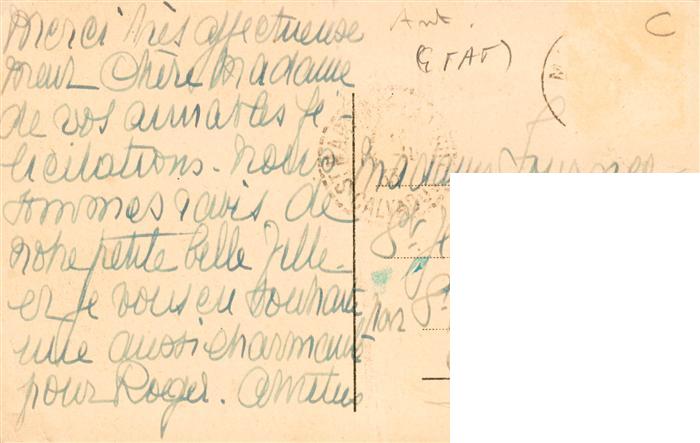 Merci très affectueuse
ment Chère Madame
de vos aimables fé-
licitations. Nous
sommes ravis de
notre petite belle fille
et je vous en souhaite
une aussi charmante
pour Roger. Amitiés
Ant.
C
Madame
St Je
par St
CALVADOS